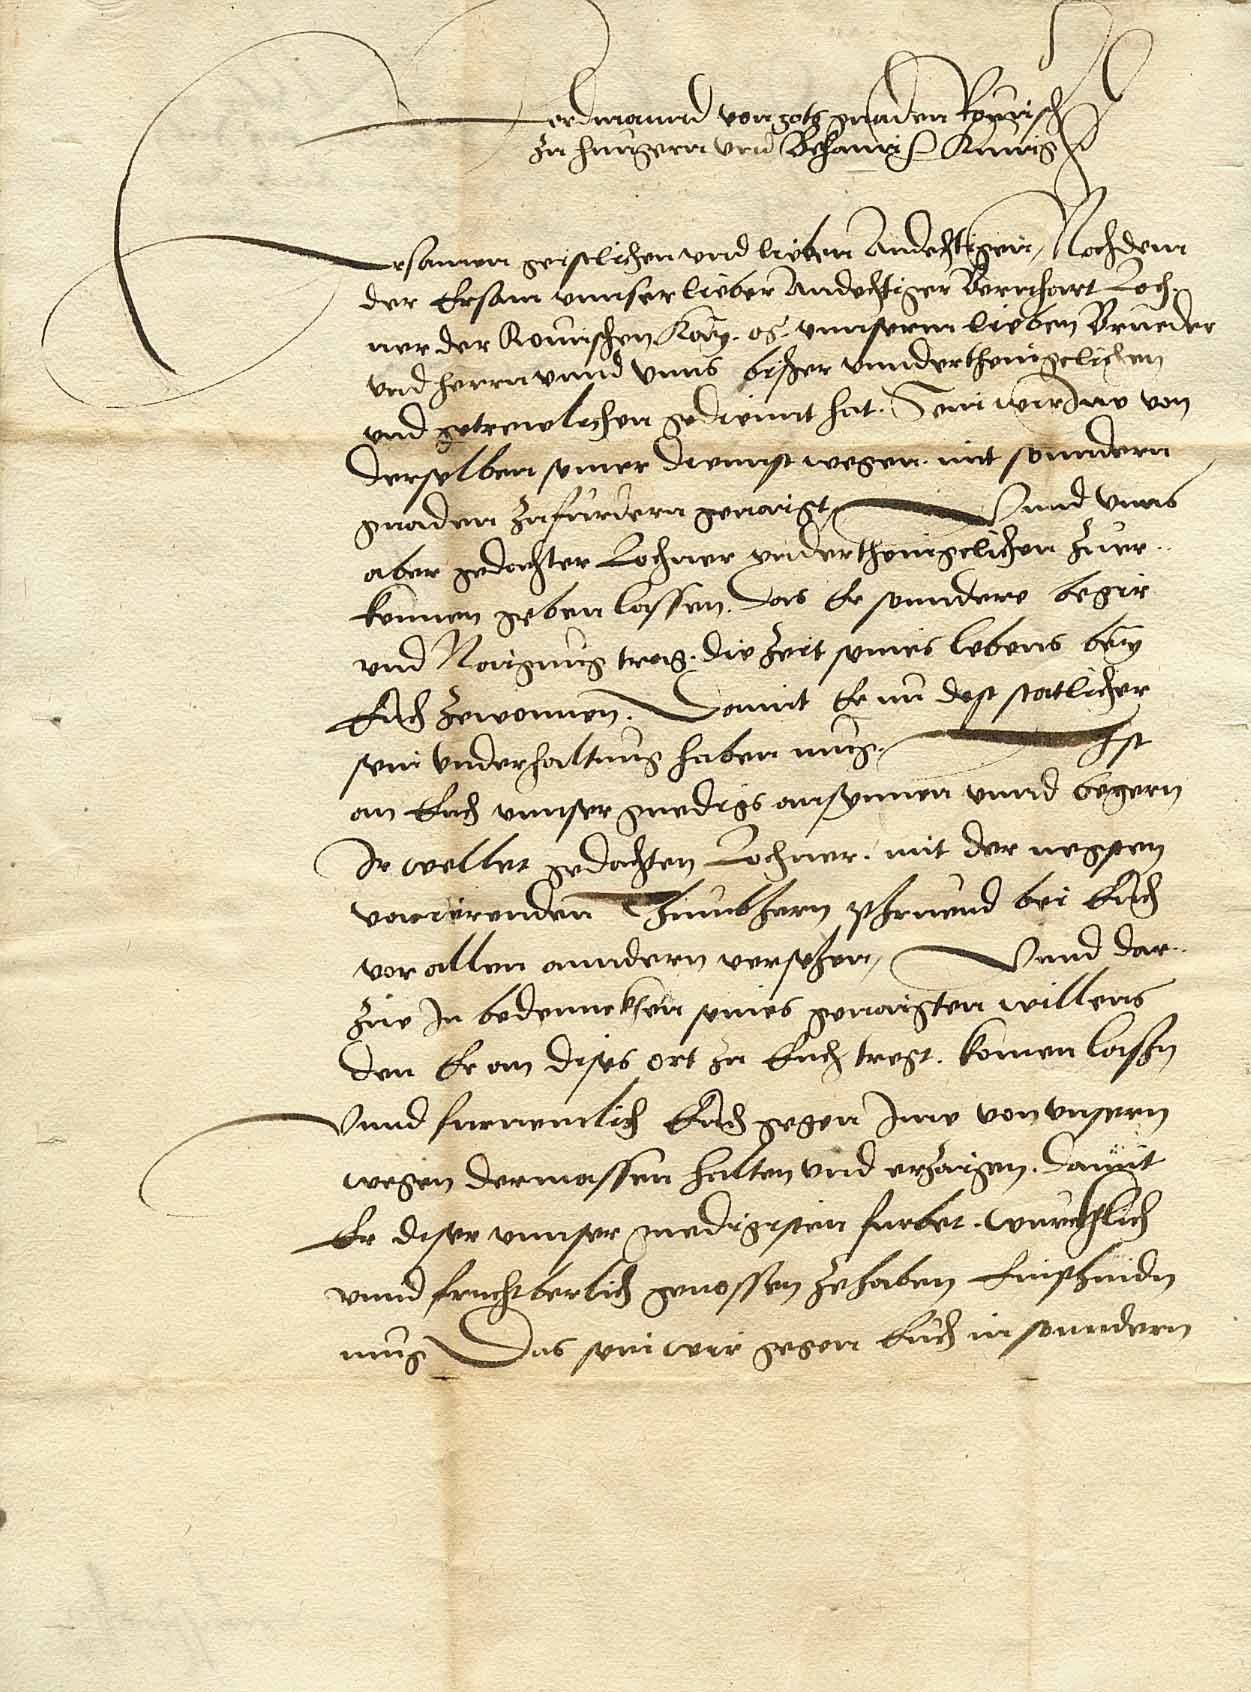 Ferdinannd von gots gnaden Romisch
zu Hungern vnd Behaim &c. Kunig &c.
Ersamen geistlichen vnd lieben Andechtigen, Nachdem
der Ersam vnnser lieber Andechtiger Bernhart Loch-
ner der Romischen Kay. &c. vnnserm lieben Brueder
vnd herrn vnnd vnns bißher vnnderthenigclichen
vnd getrewlichen gediennt hat. Sein wir Ime von
derselben seiner diennst wegen. mit sonndern
gnaden zufurdern genaigt, Vnnd vnns
aber gedachter Lochner vnderthenigclichen zuer-
kennen geben lassen. Das Er sonndere begir
vnd Naigung trag. die Zeit seines lebens bey
Euch zewonen. Damit Er nu dest statlicher
sein vnderhaltung haben mug. Ist
an Euch vnnser gnedigs ansynnen vnnd begern
Ir wellet gedachten Lochner. mit der negsten
vacierenden Thumbhern phruend bei Euch
vor allen anndern versehen, Vnnd dar-
zue In bedenncken seines genaigten willens
den Er an dises ort zu Euch tregt. komen lassn
Vnnd furnemlich Euch gegen Ime von vnsern
wegen dermassen halten vnd erzaigen. Damit
Er diser vnnser gnedigisten furbet. wurckhlich
vnnd fruchtberlich genossen zehaben Emphindn
mug Das sein wir gegen Euch in sonndern